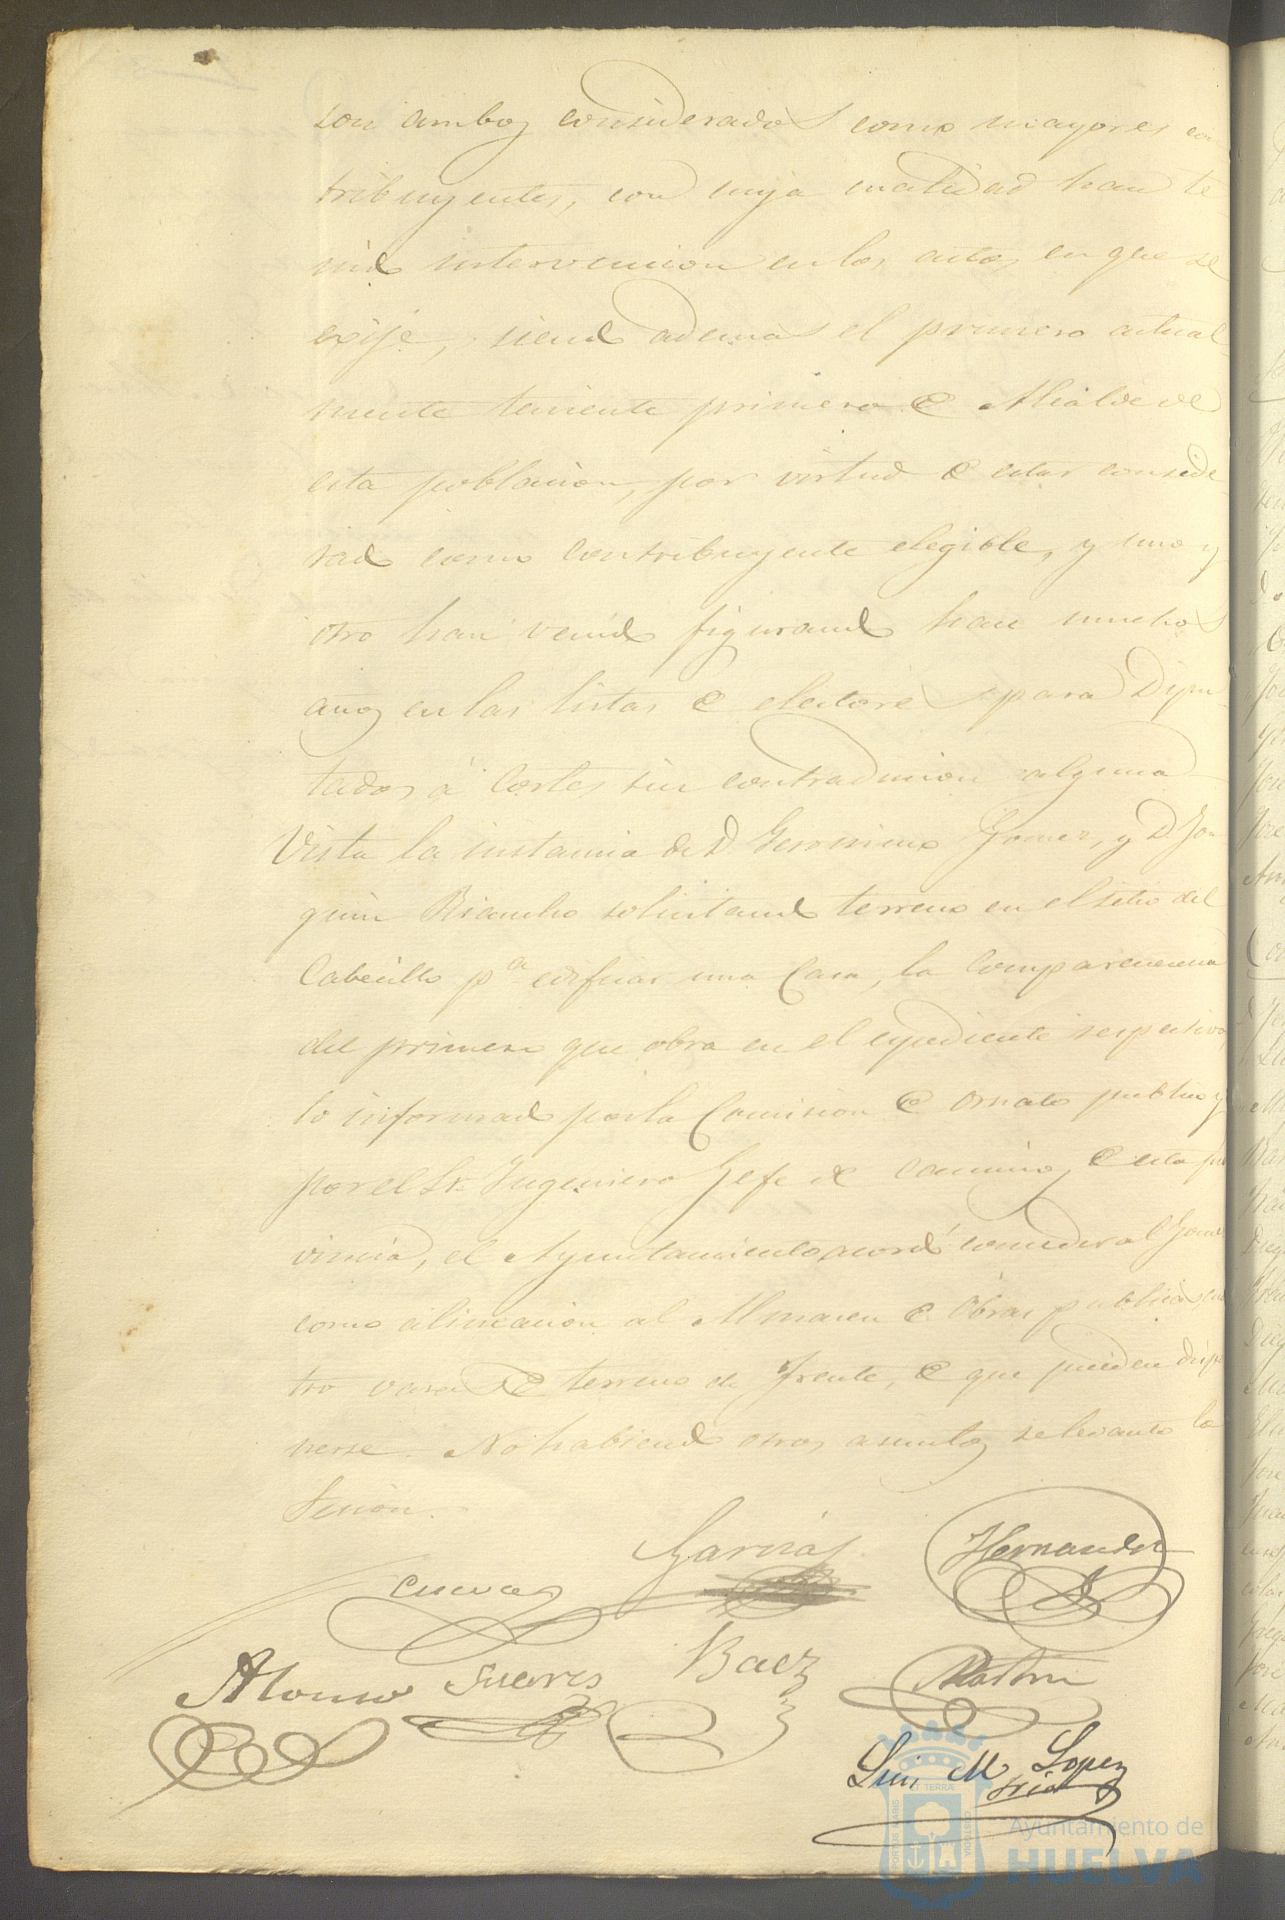 son ambos considerados como mayores con
tribuyentes, con cuya cualidad han te-
nido intervencion en los actos en que se
exije, siendo ademas el primero actual-
mente teniente primero de Alcalde de
esta poblacion, por virtud de estar conside-
rado como contribuyente elegible, y uno y
otro han venido figurando hace muchos
años en las listas de electores para Dipu-
tados á Cortes sin contradiccion alguna
Vista la instancia de D. Geronimo Gomez, y D. Joa
quin Riancho solicitando terreno en el sitio del
Cabecillo pa. edificar una Casa, la comparecencia
del primero que obra en el espediente respectivo,
lo informado por la Comision de Ornato publico y
por el Sr. Ingeniero Gefe de caminos de esta pro
vincia, el Ayuntamiento acordó conceder al Gomez
como alineacion al Almacen de Obras publicas cua
tro varas de terreno de frente, de que pueden dispo
nerse. No habiendo otros asuntos se levanto la
Sesion.
Garcia Hernandez
Cuevas
Alonso Suarez Baez
Luis M Lopez
Srio
ET TERRÆ
PORTUS MARIS
CUSTODIA
Ayuntamiento de
HUELVA